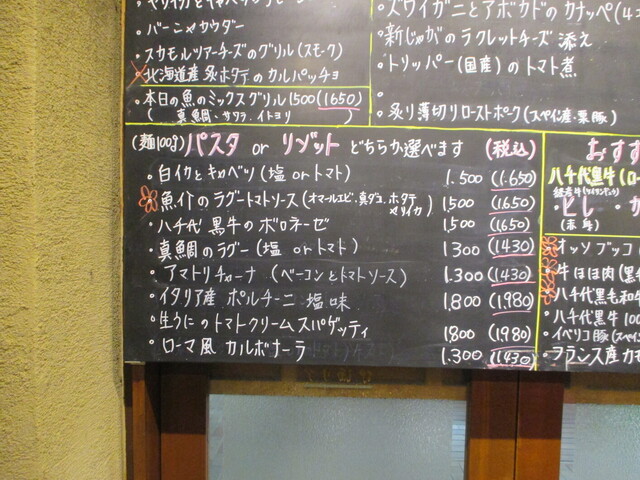 ・バーニャカウダー
・スカモルツァーチーズのグリル(スモーク)
・北海道産炙ホタテのカルパッチョ
・本日の魚のミックスグリル1500(1650)
(真鯛・サワラ・イトヨリ)
・ズワイガニとアボカドのカナッペ(
・新じゃがのラクレットチーズ 添え
・トリッパー(国産)のトマト煮
・炙り薄切りローストポーク(スペイン産・栗豚)
(麺100g)パスタ or リゾット どちらか選べます (税込)
・白イカとキャベツ(塩 or トマト) 1.500 (1.650)
・魚介のラグートマトソース(オマールエビ・真ダコ・ホタテ・ヤリイカ) 1500 (1650)
・八千代 黒牛のボロネーゼ 1,500 (1650)
・真鯛のラグー(塩 or トマト) 1300 (1430)
・アマトリチャーナ (ベーコンとトマトソース) 1.300 (1430)
・イタリア産 ポルチーニ 塩味 1,800 (1980)
・生うにのトマトクリームスパゲッティ 1,800 (1.980)
・ローマ風 カルボナーラ 1.300 (1430)
おすす
八千代黒牛(ロ
・ヒレ・カ
(赤身)
・オッソブッコ(
・牛ほほ肉(黒
・八千代黒毛和
・八千代黒牛100
・イベリコ豚(スペイン
・フランス産カモ